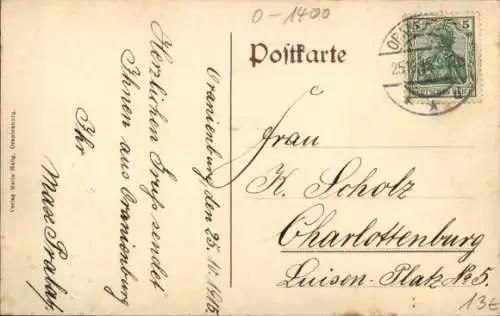 O-1400
Postkarte
5 5
25.
DEUTSCHES REICH
Oranienburg, den 25. 11. 1915.
Herzlichen Gruß sendet
Ihnen aus Oranienburg
Ihr
Max
Verlag Oranienburg.
Frau
K. Scholz
Charlottenburg
Luisen-Platz No 5.
13€